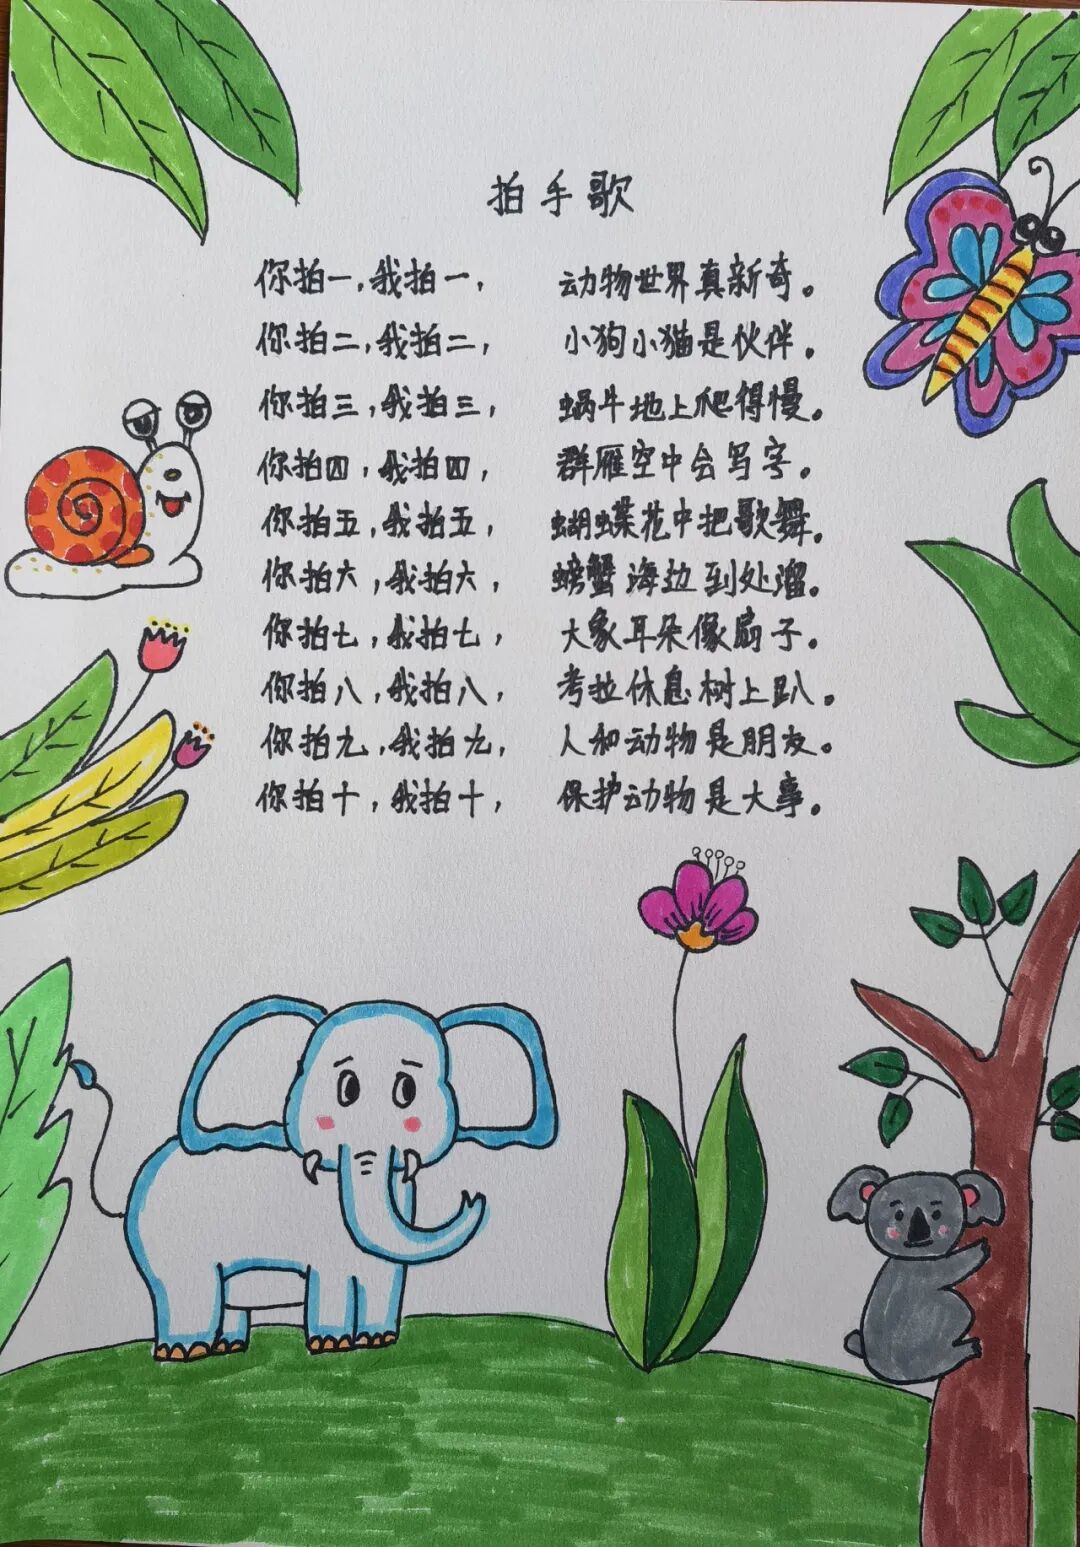 拍手歌
你拍一,我拍一, 动物世界真新奇。
你拍二,我拍二, 小狗小猫是伙伴。
你拍三,我拍三, 蜗牛地上爬得慢。
你拍四,我拍四, 群雁空中会写字。
你拍五,我拍五, 蝴蝶花中把歌舞。
你拍六,我拍六, 螃蟹海边到处溜。
你拍七,我拍七, 大象耳朵像扇子。
你拍八,我拍八, 考拉休息树上趴。
你拍九,我拍九, 人和动物是朋友。
你拍十,我拍十, 保护动物是大事。